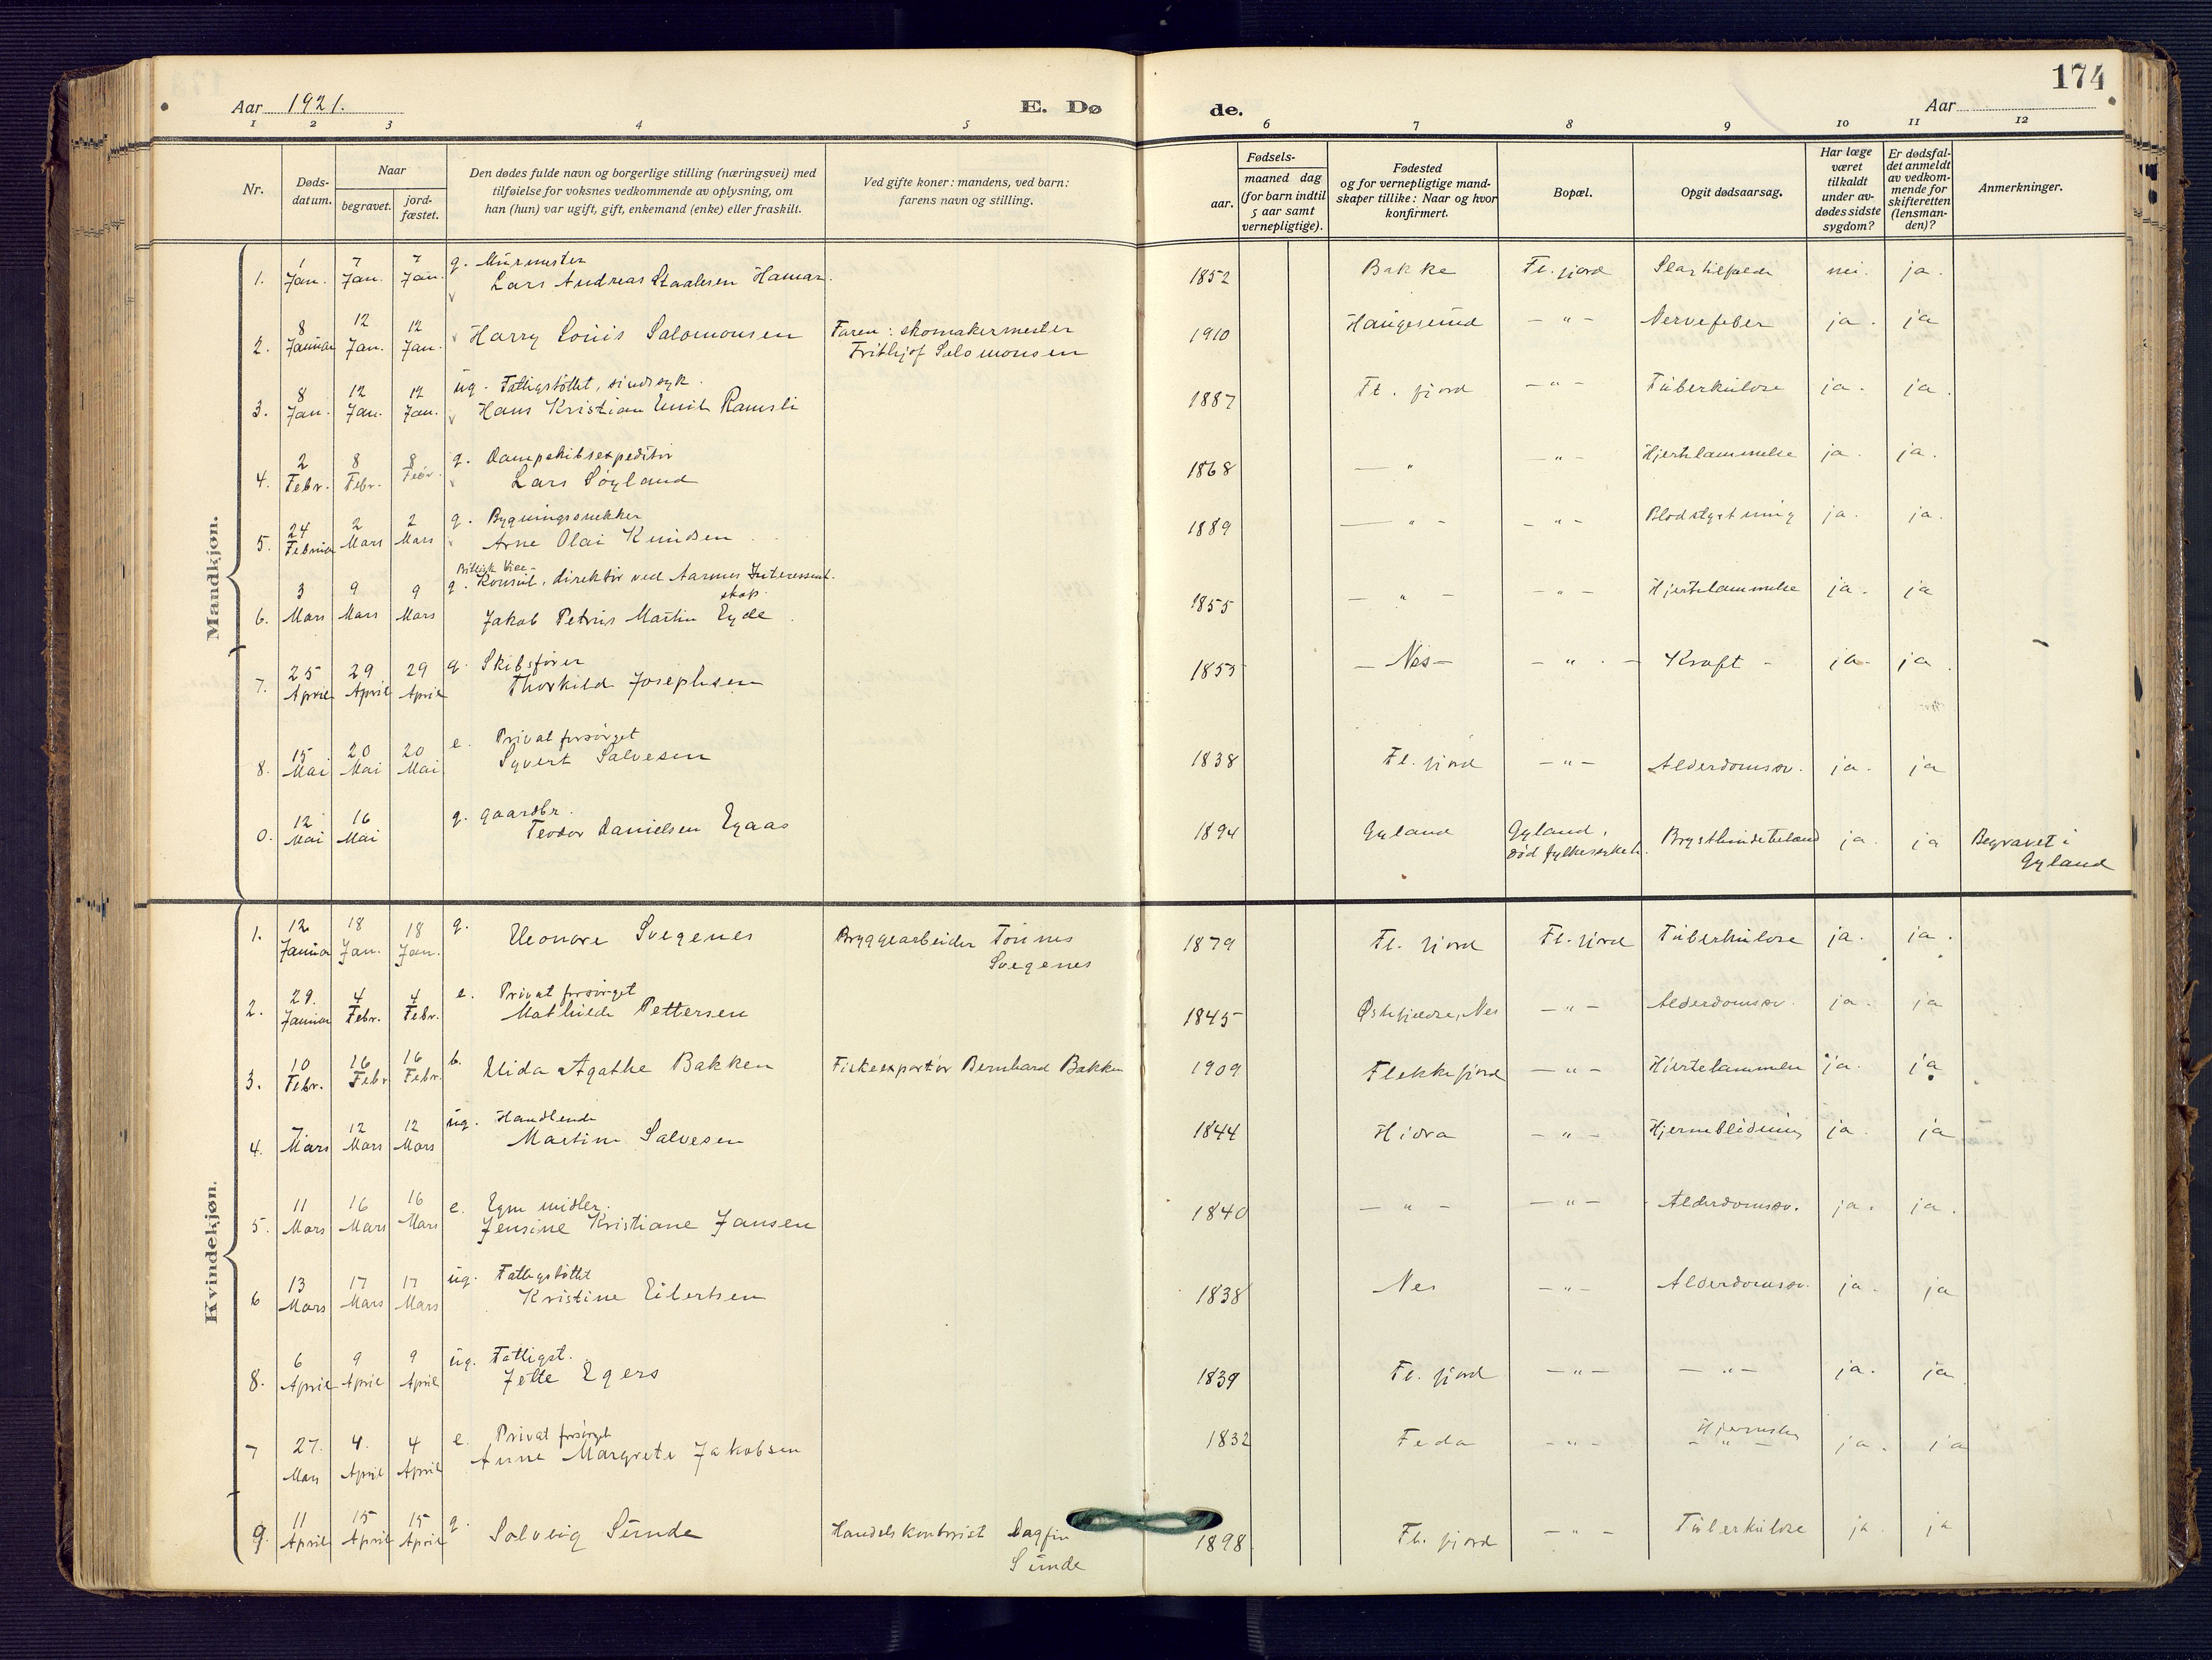 174
Aar 1921.
E. Døde.
Aar
1 2 3 4 5 6 7 8 9 10 11 12
Nr.
Døds-
datum.
Naar
begravet.
jord-
fæstet.
Den dødes fulde navn og borgerlige stilling (næringsvei) med
tilføielse for voksnes vedkommende av oplysning, om
han (hun) var ugift, gift, enkemand (enke) eller fraskilt.
Ved gifte koner: mandens, ved barn:
farens navn og stilling.
Fødsels-
aar.
maaned dag
(for barn indtil
5 aar samt
vernepligtige).
Fødested
og for vernepligtige mand-
skaper tillike: Naar og hvor
konfirmert.
Bopæl.
Opgit dødsaarsag.
Har læge
været
tilkaldt
under av-
dødes sidste
sygdom?
Er dødsfal-
det anmeldt
av vedkom-
mende for
skifteretten
(lensman-
den)?
Anmerkninger.
Mandkjøn.
1 7 7 g. Murmester
1. Jan. Jan. Jan. Lars Andreas Staalesen Hamar. 1852 Bakke Fl.fjord Slagtilfælde nei. ja.
8 12 12
2. Januar Jan. Jan. Harry Louis Salomonsen Faren: skomakermester 1910 Haugesund — " — Nervefeber ja. ja
Frithjof Salomonsen
8 12 12 ug. Fattigstøttet, sindssyk.
3. Jan. Jan. Jan. Hans Kristian Emil Ramsli 1887 Fl. fjord — " — Tuberkulose ja. ja.
2 8 8 g. Dampskibsexpeditør
4. Febr. Febr. Febr. Lars Søyland 1868 — " — " — Hjertelammelse ja. ja.
24 2 2 g. Bygningssnekker
5. Februar Mars Mars Arne Olai Knudsen 1889 — " — — " — Blodstyrtning ja. ja.
Britisk Vice-
3 9 9 g. Konsul, direktør ved Aarnes Interessent-
skap.
6. Mars Mars Mars Jakob Petrus Martin Eyde 1855 — " — — " — Hjertelammelse ja. ja
25 29 29 g. Skibsfører
7. April April April Thorkild Josephsen 1855 — Nes — — " — Kræft — ja. ja.
15 20 20 e. Privat forsørget
8. Mai Mai Mai Syvert Salvesen 1838 Fl. fjord — " — Alderdomssv. ja. ja
12 16 g. gaardbr.
0. Mai Mai Teodor Danielsen Egaas 1894 Gyland Gyland, ja. ja Begravet i
død fylkessykeh. Gyland
Kvindekjøn.
12 18 18 g.
1. Januar Jan. Jan. Eleonore Svegenes Bryggearbeider Tønnes 1879 Fl. fjord Fl. fjord Tuberkulose ja. ja.
Svegenes
29. 4 4 e. Privat forsørget
2. Januar Febr. Febr. Mathilde Pettersen 1845 Nes — " — Alderdomssv. ja. ja
10 16 16 b.
3. Febr. Febr. Febr. Elida Agathe Bakken Fiskeexportør Bernhard Bakken 1909 Flekkefjord — " — Hjertelammen ja. ja
7 12 12 ug. Handlende
4. Mars Mars Mars Martine Salvesen 1844 Hidra — " — Hjerneblødning ja. ja
11 16 16 e. Egne midler.
5. Mars Mars Mars Jensine Kristiane Jansen 1840 — " — — " — Alderdomssv. ja. ja.
13 17 17 ug. Fattigstøttet
6 Mars Mars Mars Kristine Eilertsen 1838 Nes — " — Alderdomssv. ja. ja
6 9 9 ug. Fattigst.
8. April April April Jette Egers 1839 Fl. fjord — " — — " — ja. ja.
27. 4. 4 e. Privat forsørget
7 Mars April April Anne Margrete Jakobsen 1832 Feda — " — — " — ja. ja
11 15 15 g.
9. April April April Solveig Sunde Handelskontorist Dagfin 1898 Fl. fjord — " — Tuberkulose ja ja
Sunde